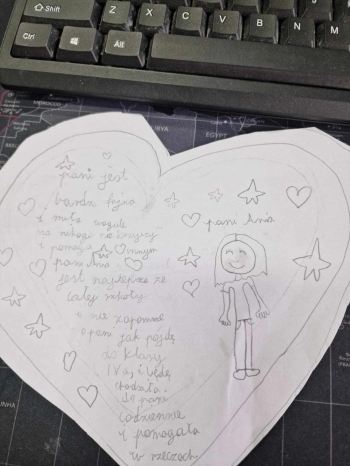 Shift
Z
X
C
V
B
N
M
Ctrl
Alt
MOROCCO
LIBYA
EGYPT
pani jest
bardz fajna
i miła wogule
na nikogo nie krzyczy
i pomaga innym
pani Ania
jest najlepsza ze
całej szkoły
i nie zapomne
o pani jak pójdę
do klasy
IVa, i będę
chodziła
do pani
codziennie
i pomogała
w rzeczach
pani Ania